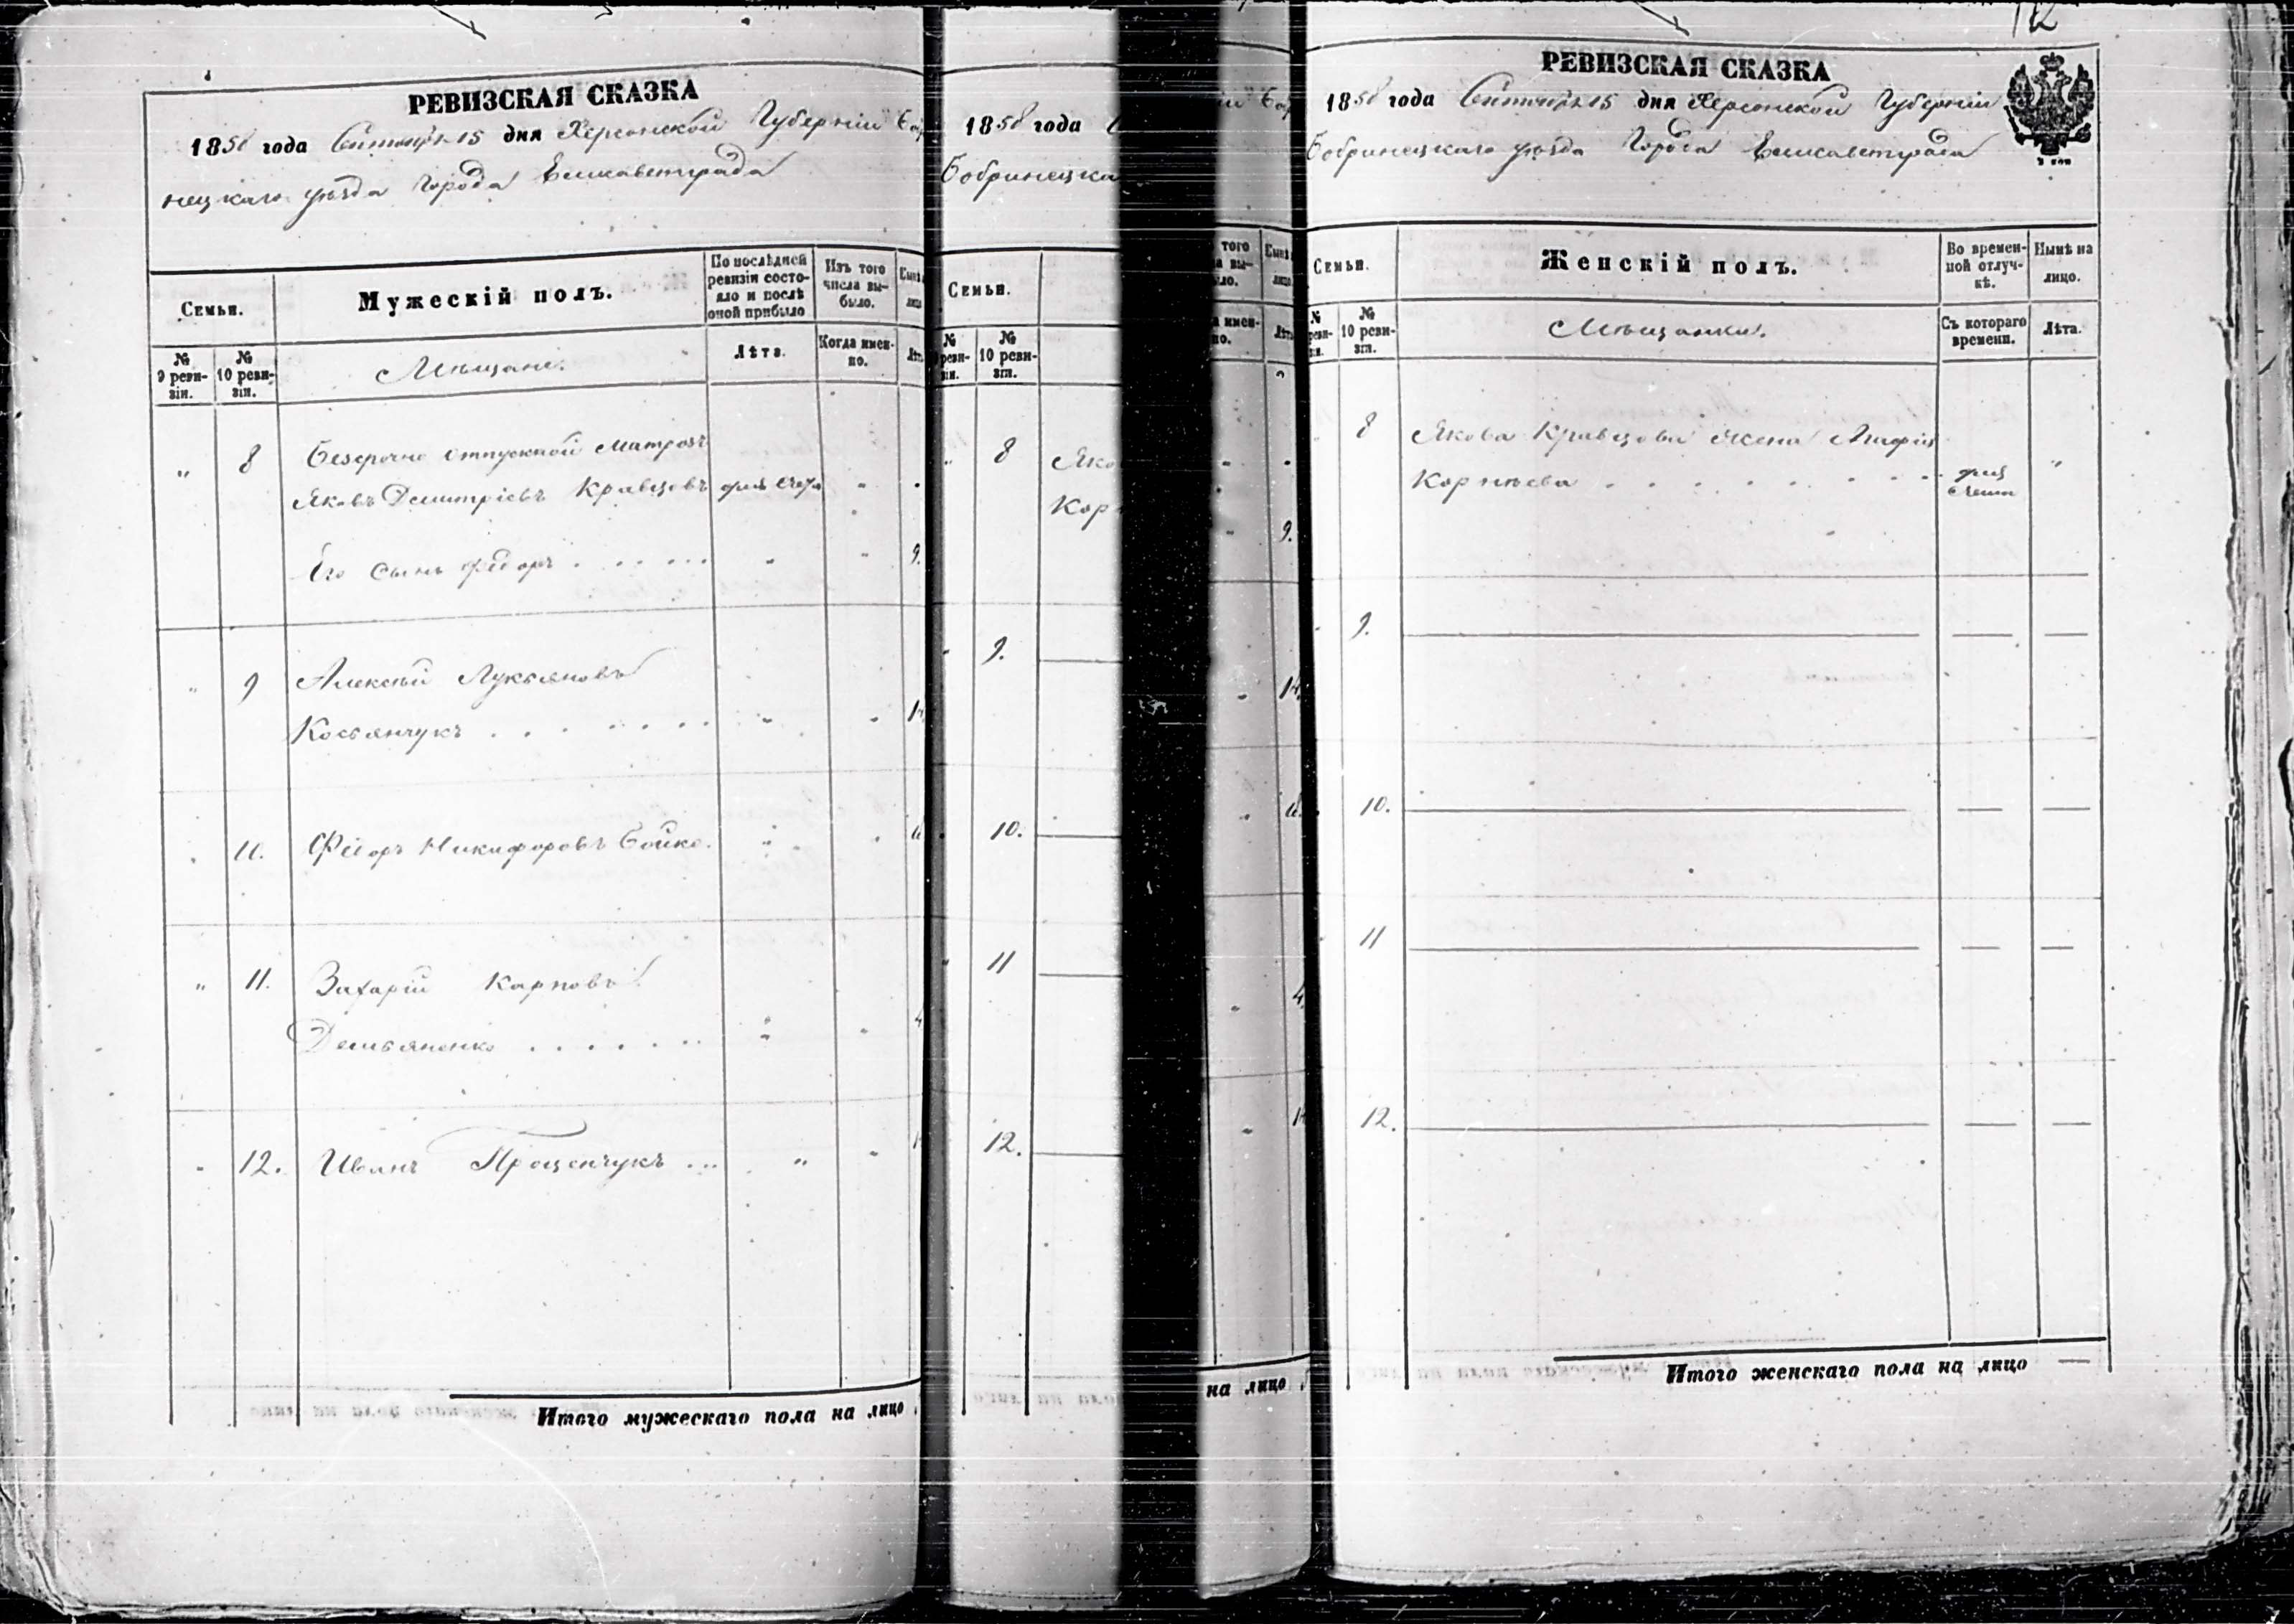 РЕВИЗСКАЯ СКАЗКА
1858 года Сентября 15 дня Херсонской Губерніи Боб
нецкаго уѣзда Города Елисаветграда
Семьи.
Мужескій полъ.
По послѣдней ревизіи состояло и послѣ оной прибыло
Изъ того числа выбыло.
№ 9 ревизіи.
№ 10 ревизіи.
Мѣщане.
Лѣта.
Когда именно.
" 8 Безсрочно отпускной Матрозъ
Яковъ Дмитріевъ Кравцовъ
Его сынъ Федоръ 9.
" 9 Алексѣй Лукьяновъ
Косьянчукъ
10. Федоръ Никифоровъ Бойко.
" 11. Захарій Карповъ
Демьяненко 4
12. Иванъ Проценчукъ
Итого мужескаго пола на лицо
1858 года
Бобринецка
Семьи.
№ 10 ревизіи.
8 Яко
Кор
9.
10.
11
12.
того
на лицо
12
РЕВИЗСКАЯ СКАЗКА
1858 года Сентября 15 дня Херсонской Губерніи
Бобринецкаго уѣзда Города Елисаветграда
Семьи.
Женскій полъ.
Во временной отлучкѣ.
Нынѣ на лицо.
№ 10 ревизіи.
Мѣщанки.
Съ котораго времени.
Лѣта.
8 Якова Кравцова жена
Корнѣева
9.
10.
11
12.
Итого женскаго пола на лицо —